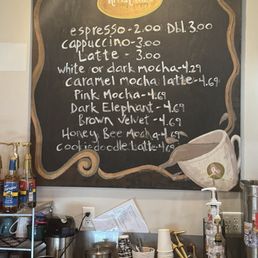 espresso-2.00 Dbl.3.00
cappuccino-3.00
Latte-3.00
white or dark mocha-4.29
caramel mocha latte-4.69
Pink Mocha-4.69
Dark Elephant-4.69
Brown Velvet-4.69
Honey Bee Mocha-4.69
cookiedoodle Latte-4.69